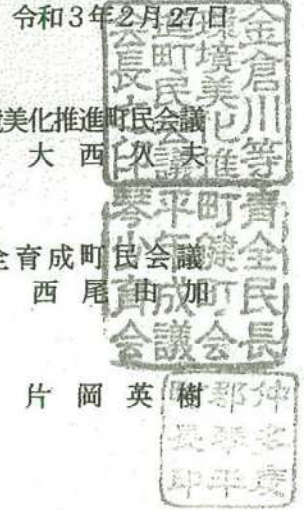 令和3年2月27日
美化推進町民会議
大西久夫
金倉川等
環境美化推進
町民会議
会長之印
全育成町民会議
西尾由加
琴平町青
少年健全
育成町民
会議会長
片岡英樹
仲多度
郡琴平
町長印